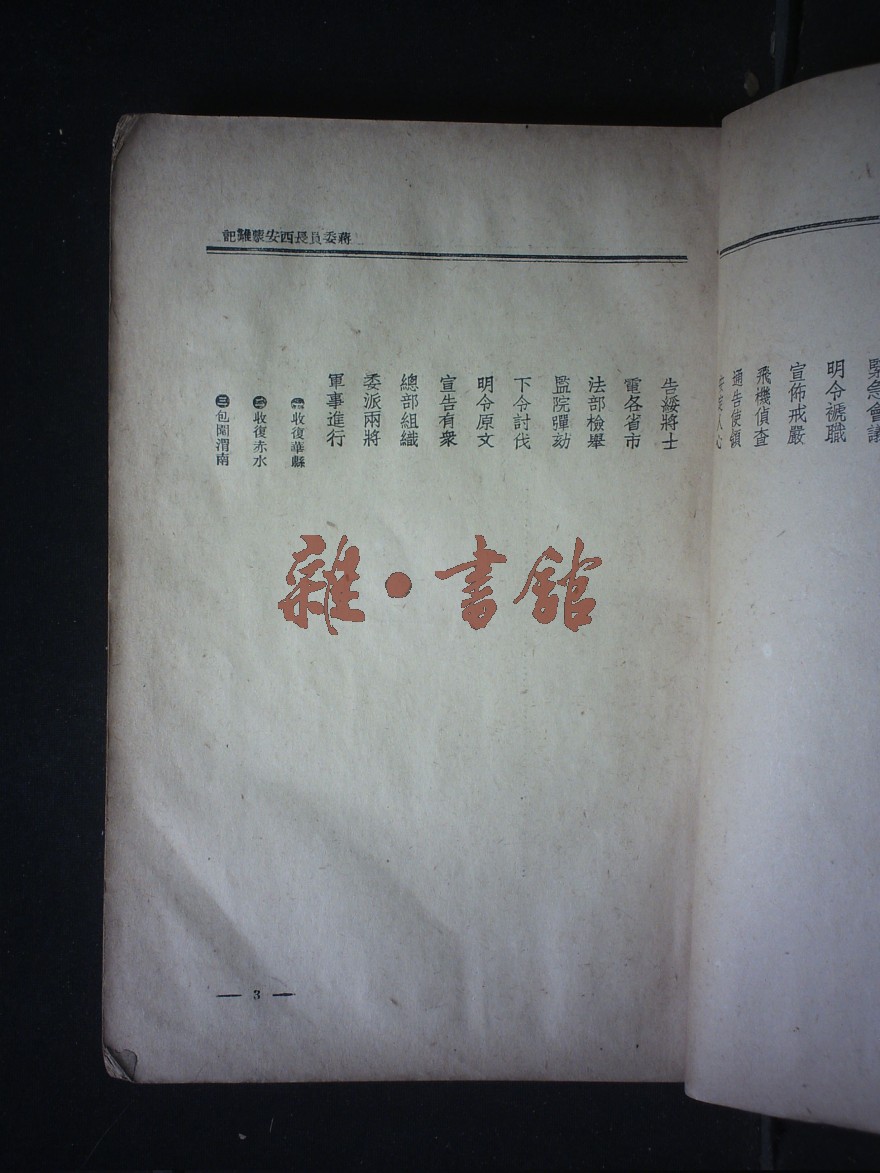 緊急會議
明令褫職
宣佈戒嚴
飛機偵查
通告使領
安定人心
蔣委員長西安蒙難記
告綏將士
電各省市
法部檢舉
監院彈劾
下令討伐
明令原文
宣告有衆
總部組織
委派兩將
軍事進行
㊀收復華縣
㊁收復赤水
㊂包圍渭南
雜·書館
— 3 —